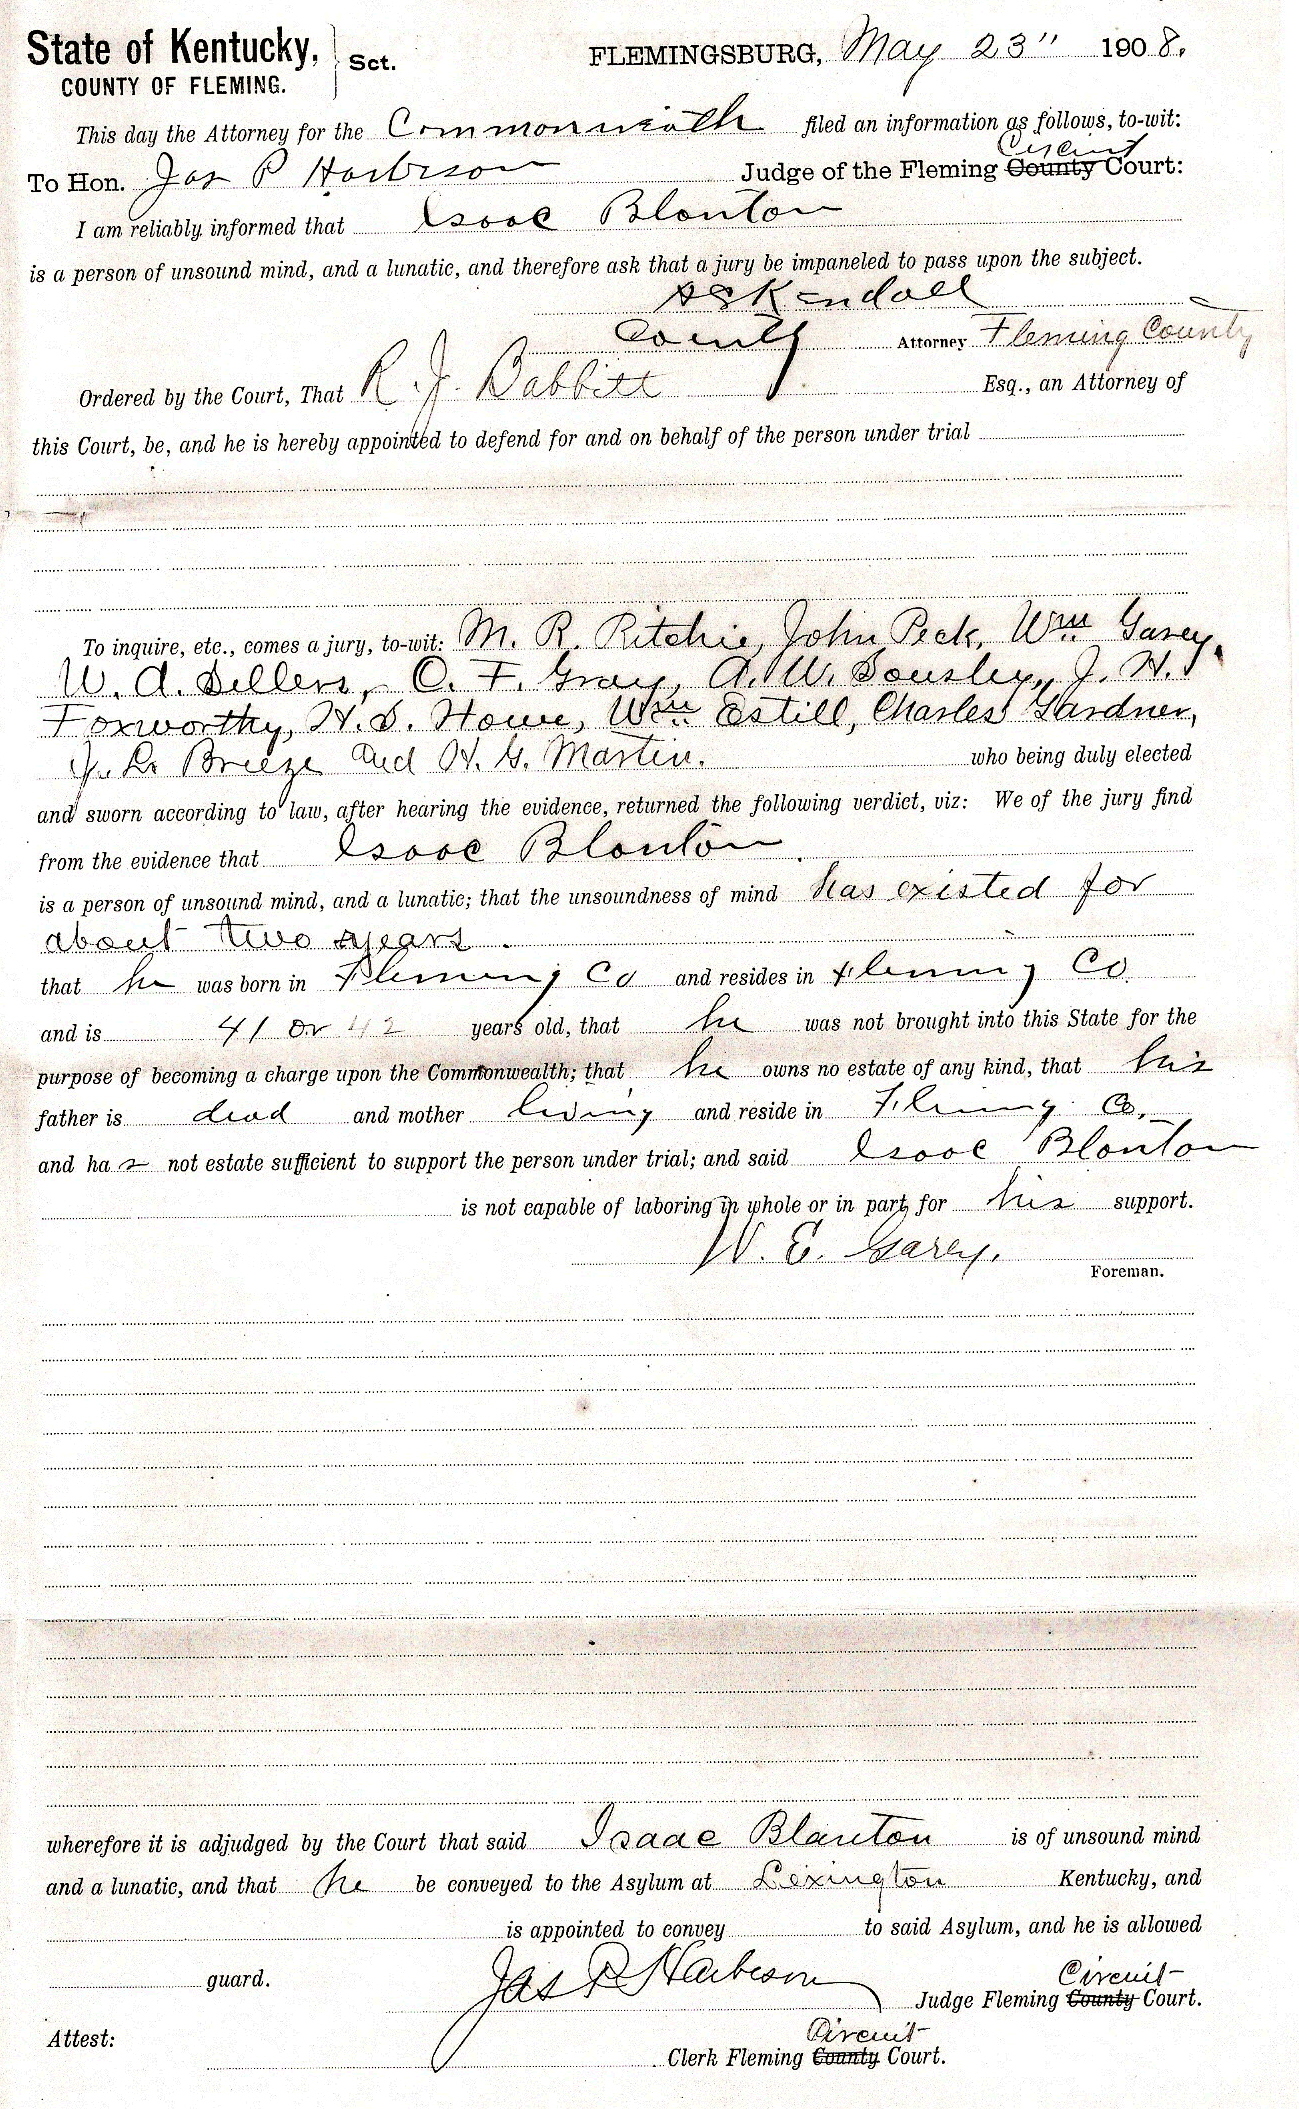 State of Kentucky, Sct. FLEMINGSBURG, May 23" 1908.
COUNTY OF FLEMING.
This day the Attorney for the Commonwealth filed an information as follows, to-wit:
Circuit
To Hon. Jas P Harbeson Judge of the Fleming County Court:
I am reliably informed that Isaac Blanton
is a person of unsound mind, and a lunatic, and therefore ask that a jury be impaneled to pass upon the subject.
Kendall
County Attorney Fleming County
Ordered by the Court, That R. J. Babbitt Esq., an Attorney of
this Court, be, and he is hereby appointed to defend for and on behalf of the person under trial
To inquire, etc., comes a jury, to-wit: M. R. Ritchie, John Peck, Wm Garey,
W. A. Sellers, O. F. Gray, A. W. Sousley, J. H.
Foxworthy, H. S. Howe, Wm Estill, Charles Gardner,
J. L. Breeze and H. G. Martin. who being duly elected
and sworn according to law, after hearing the evidence, returned the following verdict, viz: We of the jury find
from the evidence that Isaac Blanton
is a person of unsound mind, and a lunatic; that the unsoundness of mind has existed for
about two years.
that he was born in Fleming Co and resides in Fleming Co
and is 41 or 42 years old, that he was not brought into this State for the
purpose of becoming a charge upon the Commonwealth; that he owns no estate of any kind, that his
father is dead and mother living and reside in Fleming Co.
and has not estate sufficient to support the person under trial; and said Isaac Blanton
is not capable of laboring in whole or in part, for his support.
W. E. Garey.
Foreman.
wherefore it is adjudged by the Court that said Isaac Blanton is of unsound mind
and a lunatic, and that he be conveyed to the Asylum at Lexington Kentucky, and
is appointed to convey to said Asylum, and he is allowed
guard. Jas P Harbeson
Circuit
Judge Fleming County Court.
Attest:
Circuit
Clerk Fleming County Court.